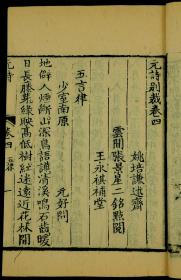 元詩別裁卷四
姚培謙述齋
雲間張景星二銘點閱
王永祺補堂
五言律
少室南原
元好問
地僻人煙斷山深鳥語譁清溪鳴石齒暖
日長藤芽綠映高低樹紅迷遠近花林間
元詩
卷四
一